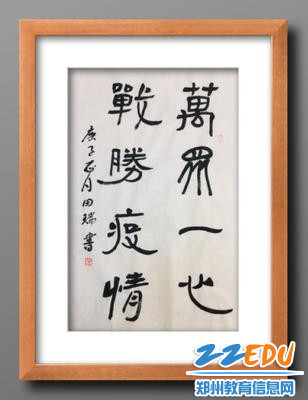 萬眾一心
戰勝疫情
庚子正月田瑞書
ZZEDU
郑州教育信息网